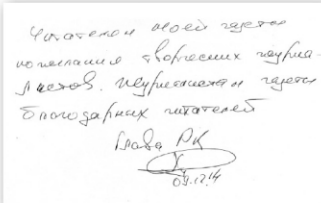 Читателям моей газеты
пожелания творческих журна-
листов. Журналистам газеты
благодарных читателей
Глава РК
09.12.14